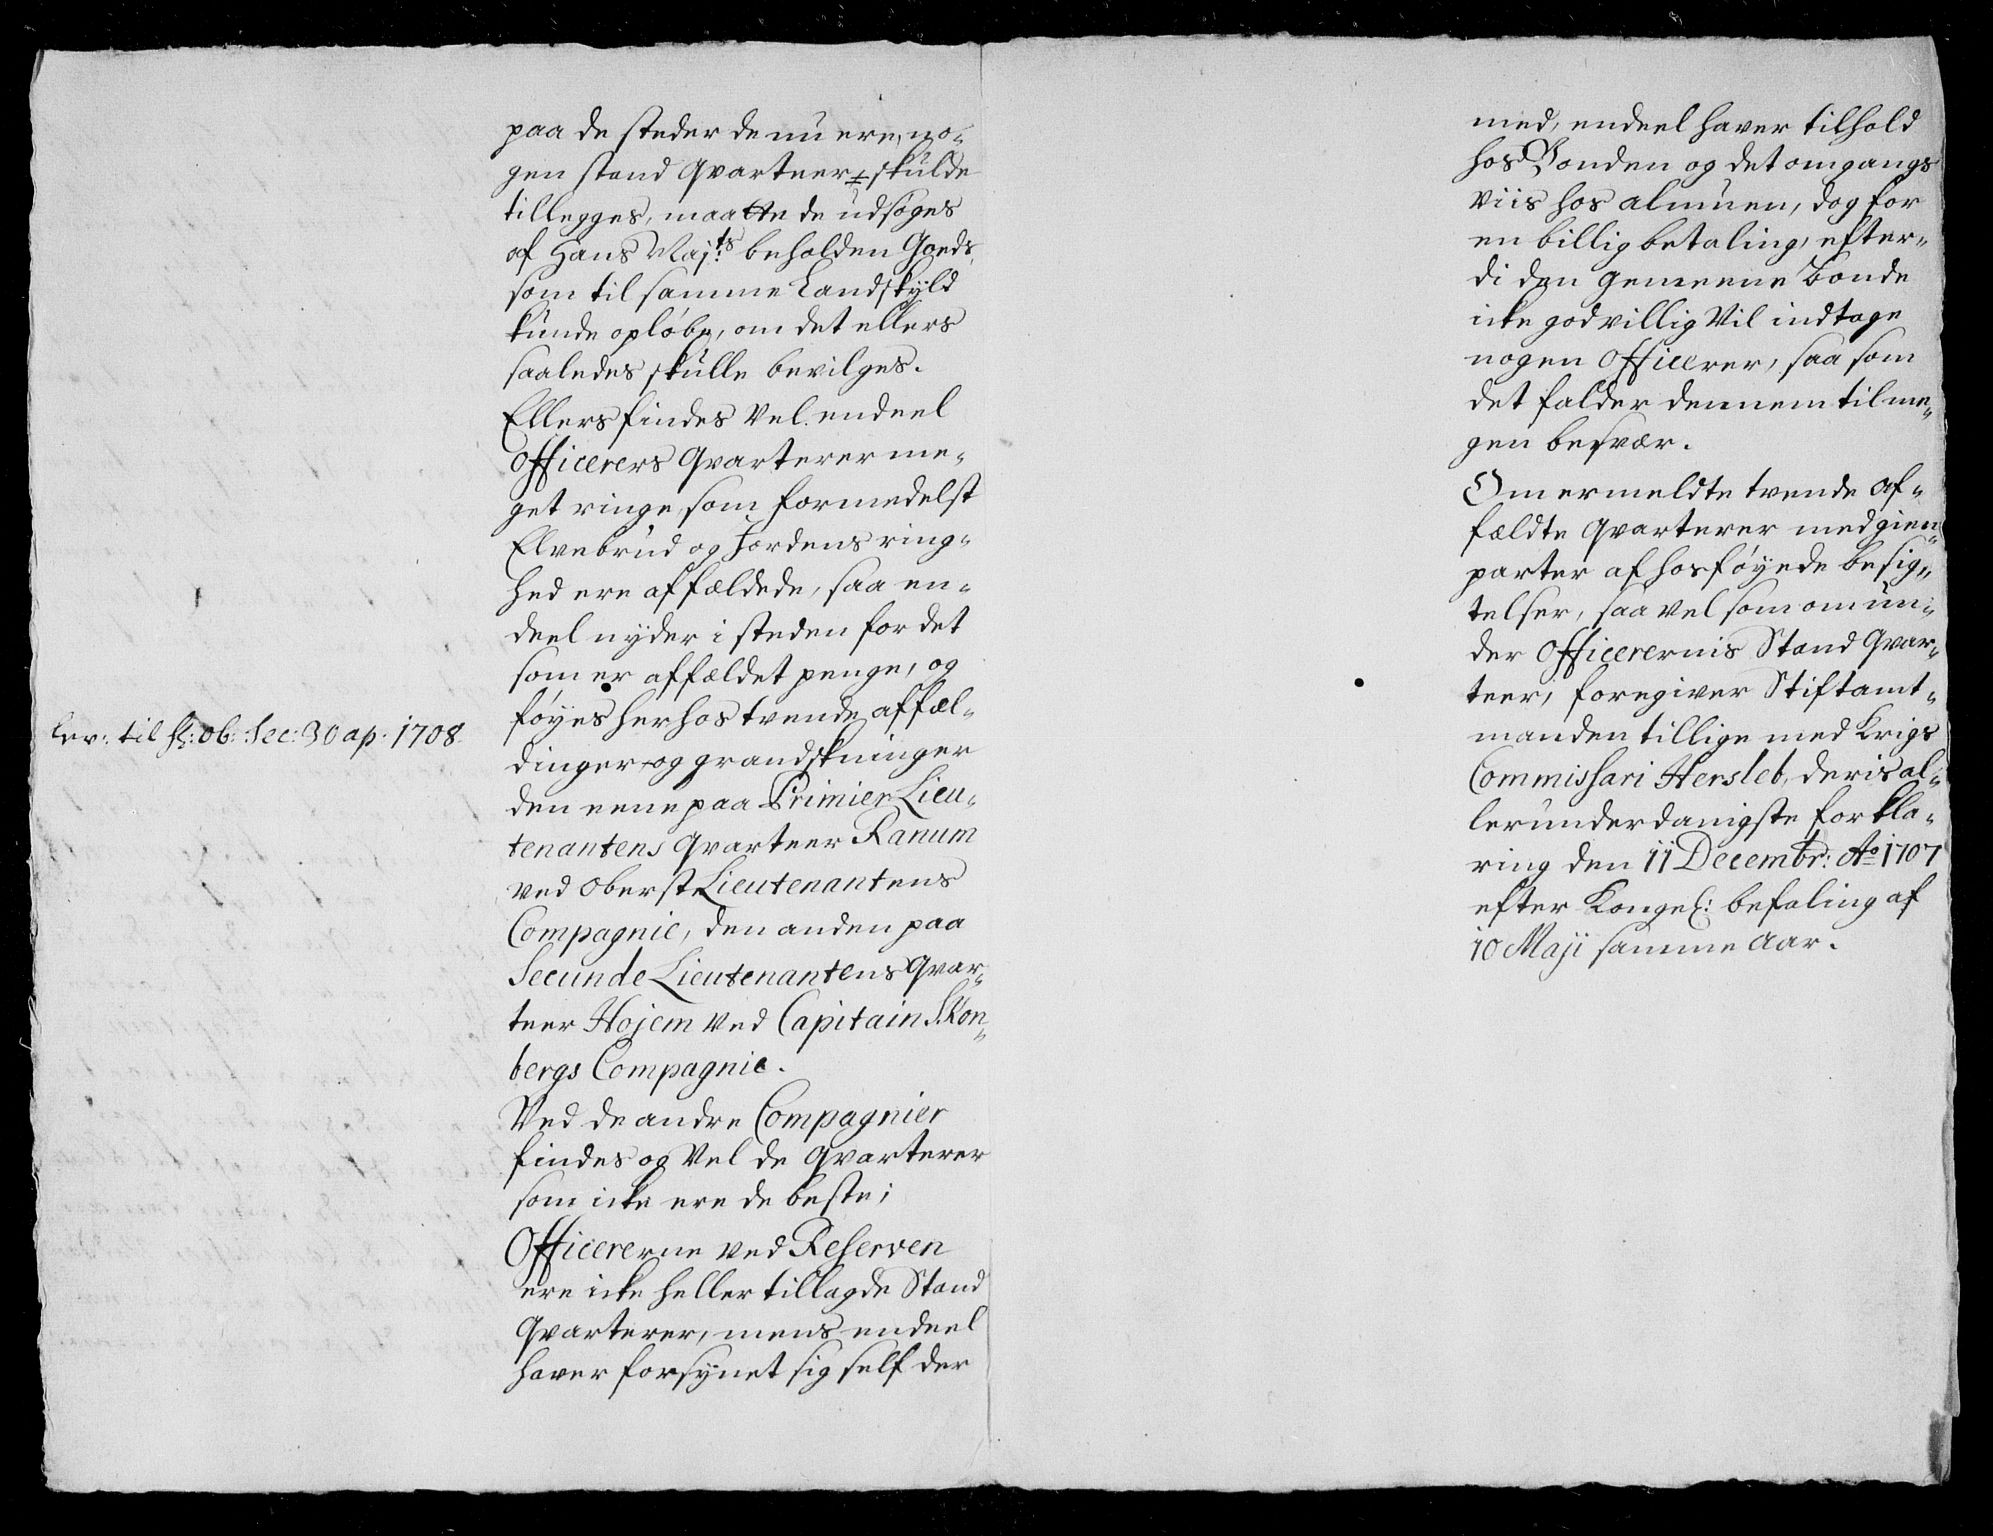 paa de steder de nu ere, no-
gen stand Qvarteer skulde
tillegges, maatte de udsøges
af Hans Majts beholden Goeds,
som til samme Landskyld
kunde opløbe, om det ellers
saaledes skulle bevilges.
Ellers findes vel endeel
Officerers Qvarterer me-
get ringe, som formedelst
Elvebrud og Jordens ring-
hed ere affældede, saa en-
deel nyder i steden for det
som er affældet penge, og
føyes herhos tvende affæl-
dinger og grandskninger
den eene paa Primier Lieu-
tenantens Qvarteer Ranum
ved Oberst Lieutenantens
Compagnie, den anden paa
Secunde Lieutenantens Qvar-
teer Hojem ved Capitain Skon-
bergs Compagnie.
Ved de andre Compagnier
findes og vel de Qvarterer
som icke ere de beste;
Officererne ved Reserven
ere icke heller tillagde Stand
Qvarterer, mens endeel
haver forsynet sig self der
lev: til H: Ob: Sec: 30 ap. 1708
med, endeel haver tilhold
hos Bonden og det omgangs
viis hos almuen, dog for
en billig betaling, efter-
di den gemeene Bonde
icke godvillig vil indtage
nogen Officerer, saa som
det falder dennem til me-
gen besvær.
Om ermeldte tvende af-
fældte Qvarterer med gien-
parter af hosføyede besig-
telser, saa vel som om un-
der Officerernis Stand Qvar-
teer, foregiver Stiftamt-
manden tillige med Krigs
Commissari Hersleb, deris al-
lerunderdanigste forkla-
ring den 11 Decembr: Ao 1707
efter Kongel: befaling af
10 Maji samme Aar.